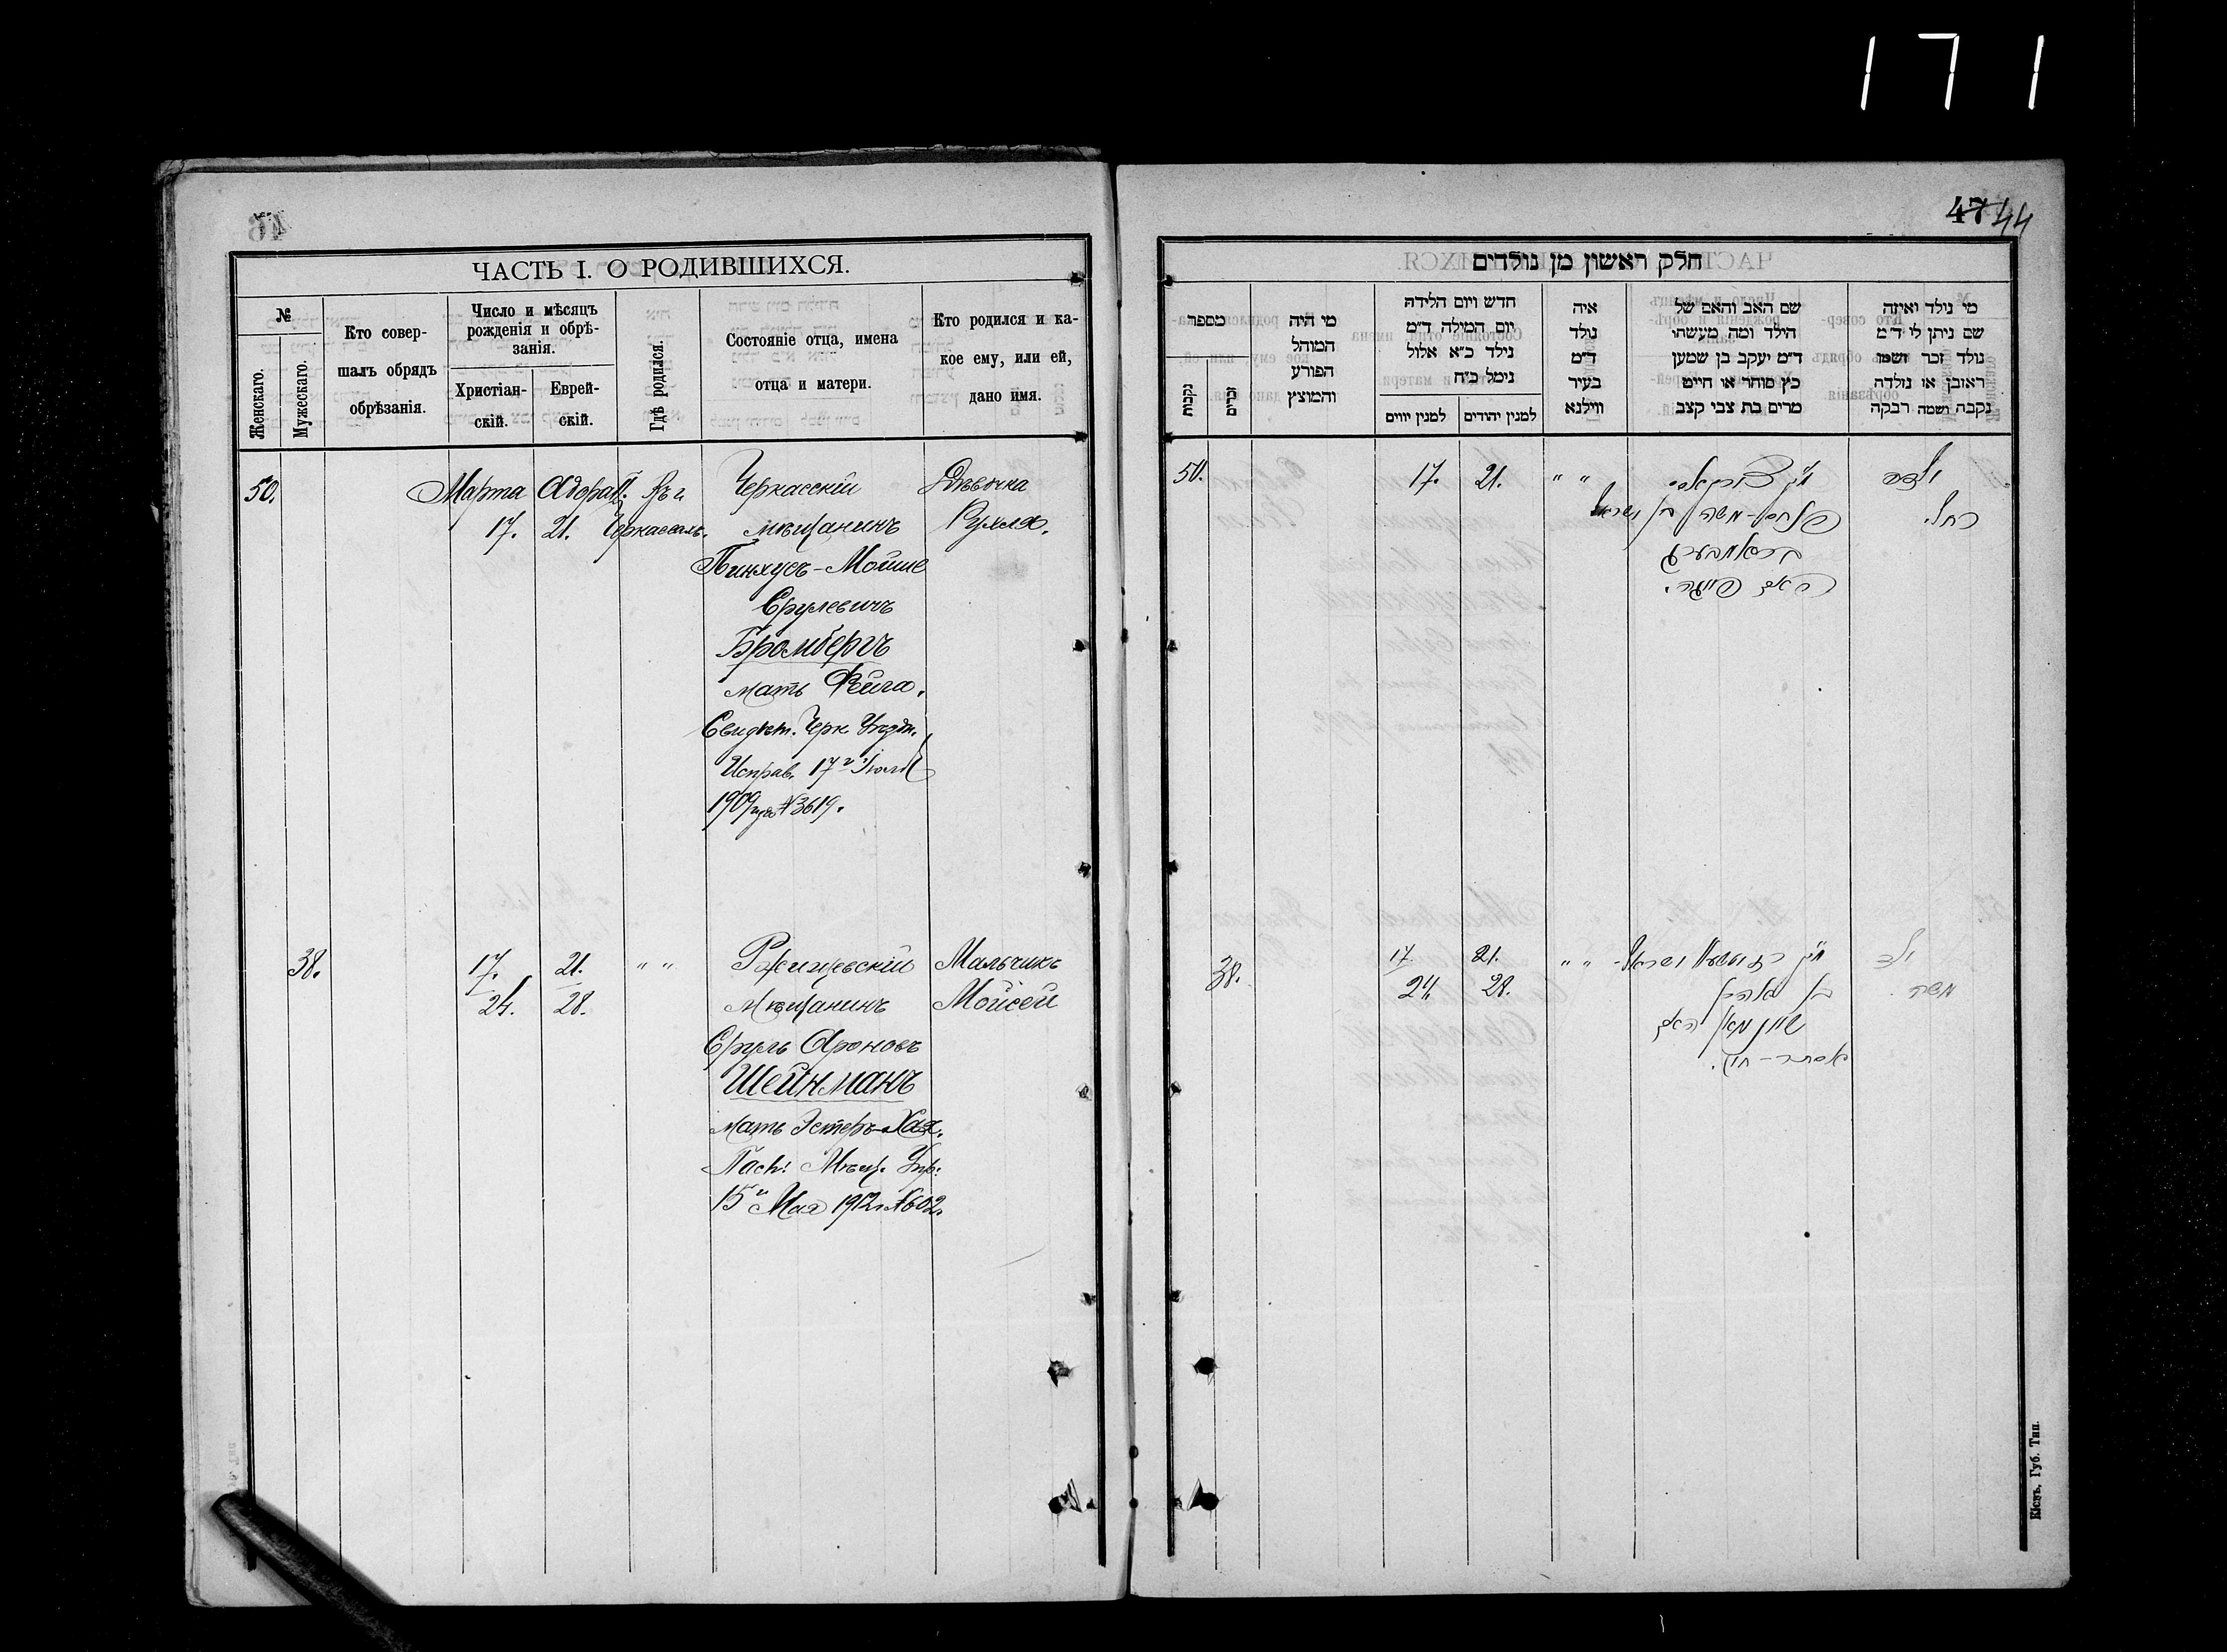 171
46
ЧАСТЬ I. О РОДИВШИХСЯ.
№
Женскаго.
Мужескаго.
Кто совер-
шалъ обрядъ
обрѣзанія.
Число и мѣсяцъ
рожденія и обрѣ-
занія.
Христіан-
скій.
Еврей-
скій.
Гдѣ родился.
Состояніе отца, имена
отца и матери.
Кто родился и ка-
кое ему, или ей,
дано имя.
50.
Марта
17.
Адора II.
21.
Въ г.
Черкассахъ.
Черкасскій
мѣщанинъ
Пинхусъ-Мойше
Срулевичъ
Бромбергъ
мать Фейга.
Свидѣт. Черк. Уѣздн.
Исправ. 17 Іюля
1909 года №3619.
Дѣвочка
Рухля.
38.
17.
24.
21.
28.
" "
Ржищевскій
Мѣщанинъ
Сруль Ароновъ
Шейнманъ
мать Эстеръ-Хая.
Пасп: Мѣщ. Упр:
15 Мая 1912 г. №602.
Мальчикъ
Мойсей
47 44
חלק ראשון מן נולדים
מספר
נקבות
זכרים
מי היה
המוהל
הפורע
והמוצץ
חדש ויום הלידה
יום המילה ד"מ
נולד כ"א אלול
נימול כ"ח
למנין יווים
למנין יהודים
איה
נולד
ד"מ
בעיר
ווילנא
שם האב והאם של
הילד ומה מעשהו
ד"מ יעקב בן שמען
כץ סוחר או חייט
מרים בת צבי קצב
מי נולד ואיזה
שם ניתן לו ד"מ
נולד זכר ושמו
ראובן או נולדה
נקבה ושמה רבקה
50.
17.
21.
" "
פנחס-משה בן ישראל
בראמבערג
האם פייגה.
ילדה
רחל.
38.
17.
24.
21.
28.
" "
בן אהרן
שיינמאן האם
אסתר-חי'.
ילד
משה.
Кіевъ, Губ. Тип.